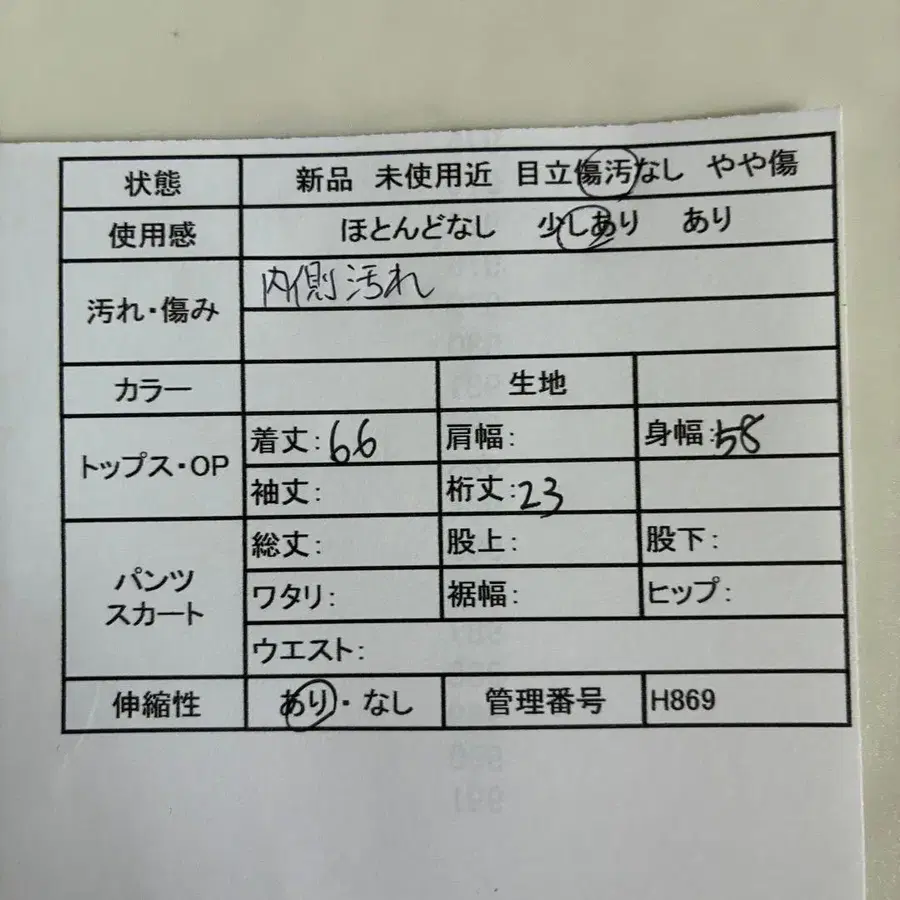 状態 新品 未使用近 目立傷汚なし やや傷
使用感 ほとんどなし 少しあり あり
汚れ・傷み 内側汚れ
カラー 生地
トップス・OP 着丈:66 肩幅: 身幅:58
袖丈: 裄丈:23
パンツ
スカート
総丈: 股上: 股下:
ワタリ: 裾幅: ヒップ:
ウエスト:
伸縮性 あり・なし 管理番号 H869